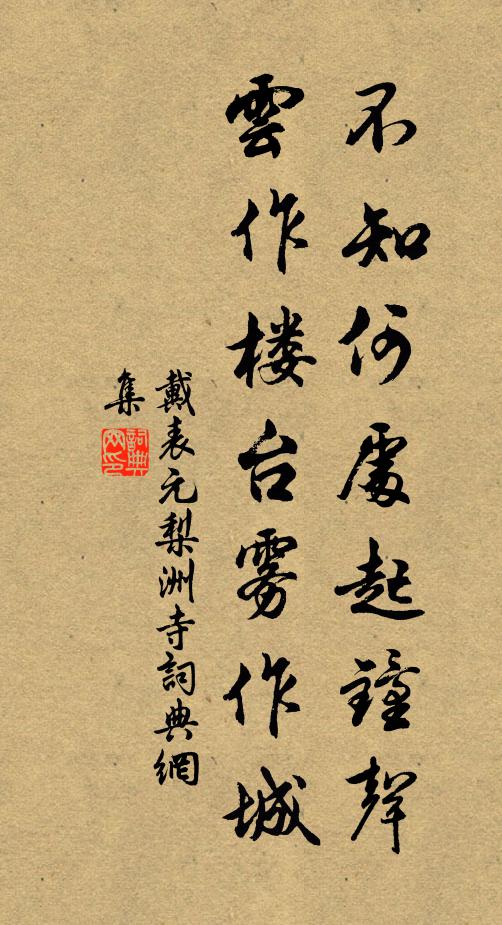 不知何處起鐘聲
雲作楼台雾作城
戴表元梨洲寺詞典網
集
詞典網印